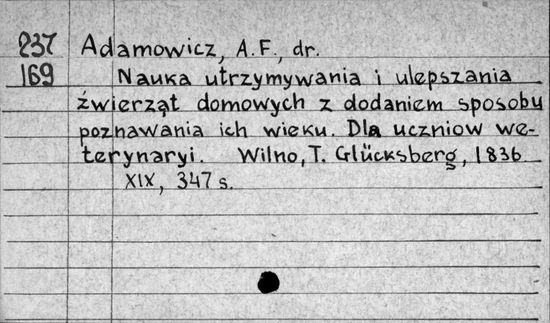 237 Adamowicz, A.F., dr.
169 Nauka utrzymywania i ulepszania
źwierząt domowych z dodaniem sposobu
poznawania ich wieku. Dla uczniow we-
terynaryi. Wilno, T. Glücksberg, 1836
XIX, 347 s.